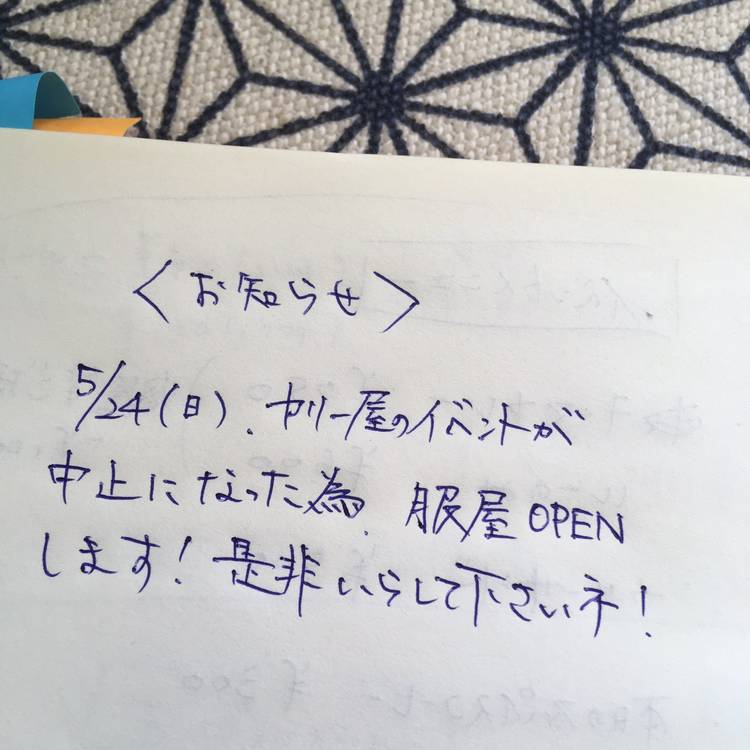 〈お知らせ〉
5/24(日)、カリー屋のイベントが
中止になった為、服屋OPEN
します！是非いらして下さいネ！